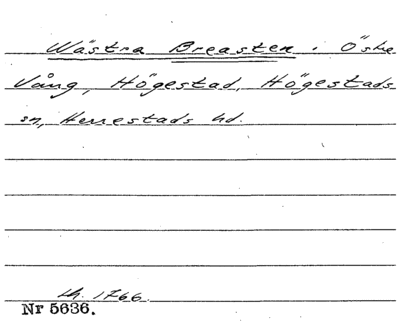 Wästra Breasten i Östre
Vång, Högestad, Högestads
sn, Herrestads hd.
Lh. 1766.
Nr 5636.